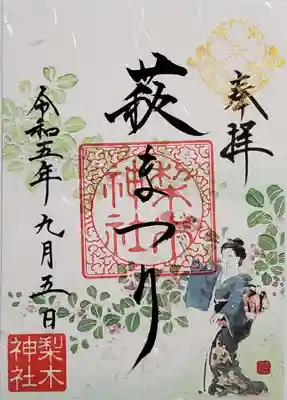 奉拝
萩まつり
梨木神社
令和五年九月五日
梨木神社